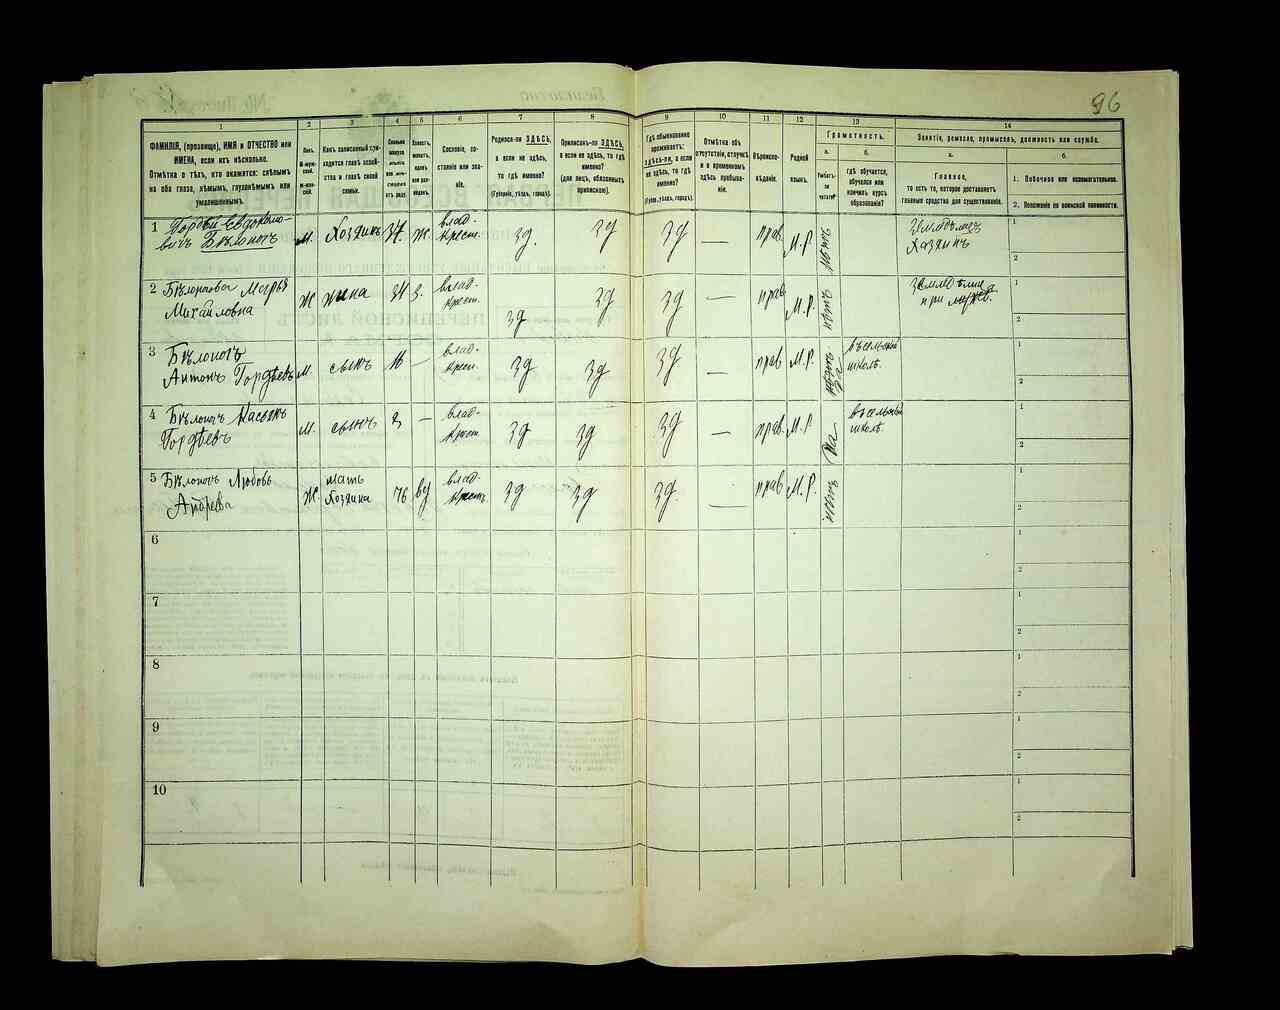 96
1
2
3
4
5
6
7
8
9
10
11
12
13
14
ФАМИЛІЯ, (прозвище), ИМЯ и ОТЧЕСТВО или
ИМЕНА, если ихъ нѣсколько.
Отмѣтка о тѣхъ, кто окажется: слѣпымъ
на оба глаза, нѣмымъ, глухонѣмымъ или
умалишеннымъ.
Полъ.
М-муж-
ской.
Ж-жен-
скій.
Какъ записанный при-
ходится главѣ хозяй-
ства и главѣ своей
семьи.
Сословіе, со-
стояніе или зва-
ніе.
Родился-ли ЗДѢСЬ,
а если не здѣсь,
то гдѣ именно?
(Губернія, уѣздъ, городъ).
Приписанъ-ли ЗДѢСЬ,
а если не здѣсь, то гдѣ
именно?
(для лицъ, обязанныхъ
припискою).
Гдѣ обыкновенно
проживаетъ:
ЗДѢСЬ-ЛИ, а если
не здѣсь, то гдѣ
именно?
(Губер., уѣздъ, городъ).
Отмѣтка объ
отсутствіи, отлучкѣ
и о временномъ
здѣсь пребыва-
ніи.
Вѣроиспо-
вѣданіе.
Родной
языкъ.
Грамотность.
а.
б.
Умѣетъ-
ли
читать?
Гдѣ обучается,
обучался или
кончилъ курсъ
образованія?
Занятіе, ремесло, промыселъ, должность или служба.
а.
б.
Главное,
то есть то, которое доставляетъ
главныя средства для существованія.
1. Побочное или вспомогательное.
2. Положеніе по воинской повинности.
1 Гордѣй Евдокимо-
вичъ Бѣлопотъ м. Хозяинъ 34 ж. влад. крест. зд. зд зд — прав. М.Р. нѣтъ Земледѣлец Хазяинъ
2 Бѣлопотова Марья
Михайловна ж жена 34 з. влад. крест. зд зд зд — прав М.Р. нѣтъ
при мужѣ.
3 Бѣлопотъ
Антонъ Гордѣевъ м. сынъ влад. крест. зд зд зд — прав М.Р. да въ сельской школѣ.
4 Бѣлопотъ
Гордѣевъ м. сынъ — влад. крест. зд зд зд — прав. М.Р. да въ сельской школѣ
5 Бѣлопотъ Любовь
Андреева ж. мать Хозяина 76 вд влад. крест. зд зд зд. — прав М.Р. нѣтъ
6
7
8
9
10